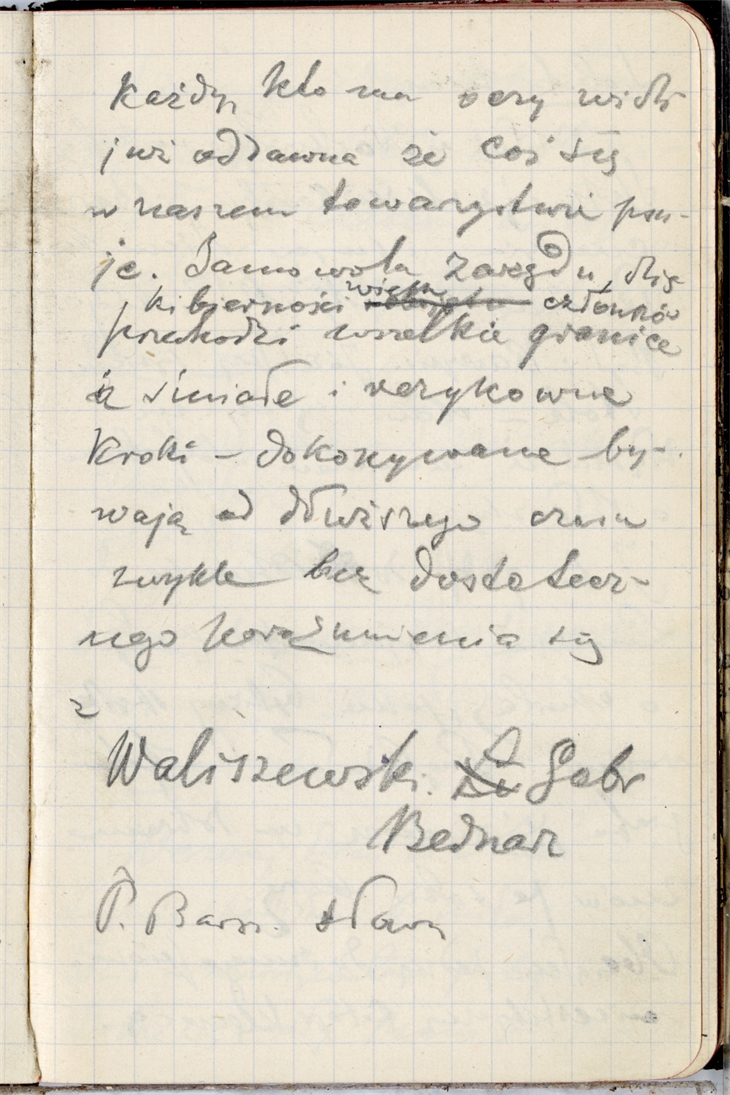 Każdy, kto ma oczy widzi
już oddawna że coś się
w naszem towarzystwie psu-
je. Samowola Zarządu, dzię
ki bierności większ członków
przechodzi wszelkie granice
a śmiałe i ryzykowne
kroki – dokonywane by-
wają od dłuższego czasu
zwykle bez dostatecz-
nego porozumienia się
z
Waliszewski. Gabr
Bednarz
P. Barsz.